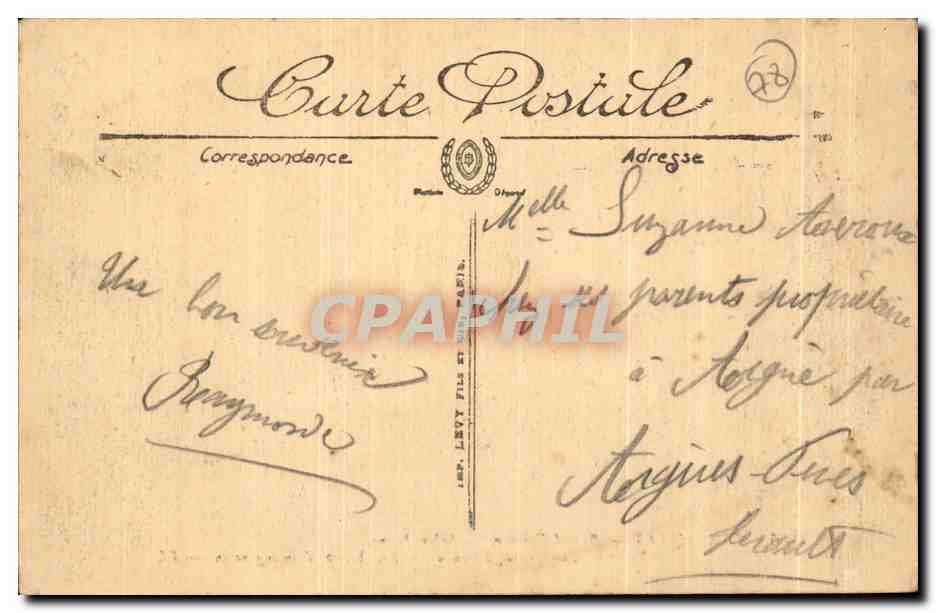 Carte Postale
78
Correspondance
Adresse
Melle Suzanne
ses parents propriétaire
à Aigne par
Aigues-Vives
Hérault
Un bon souvenir
Raymonde
IMP. LEVY FILS ET PARIS.
CPAPHIL